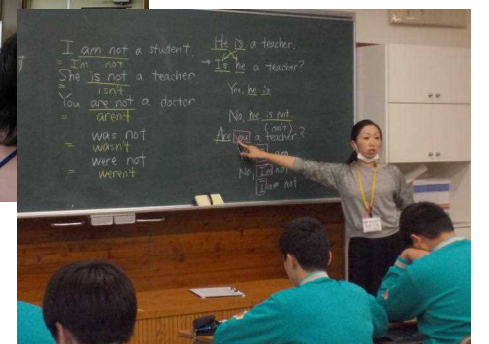 I am not a student.
= I'm not
She is not a teacher
= isn't
You are not a doctor
= aren't
was not
= wasn't
were not
= weren't
He is a teacher.
→ Is he a teacher?
he is
No, he is not.
(isn't)
Are you a teacher?
am
No, I'm not
I am not